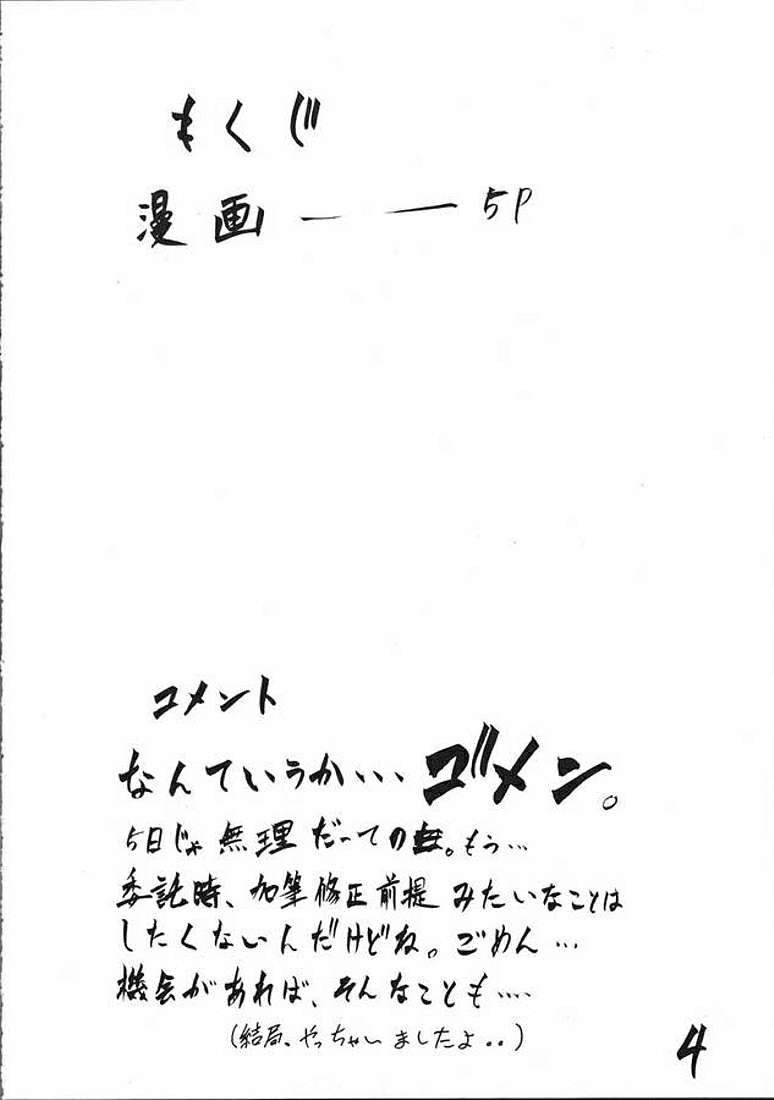 もくじ
漫画 ― ― 5P
コメント
なんていうか… ゴメン。
5日じゃ無理だっての。もう…
委託時、加筆修正前提みたいなことは
したくないんだけどね。ごめん…
機会があれば、そんなことも‥‥
(結局、やっちゃいましたよ‥)
4